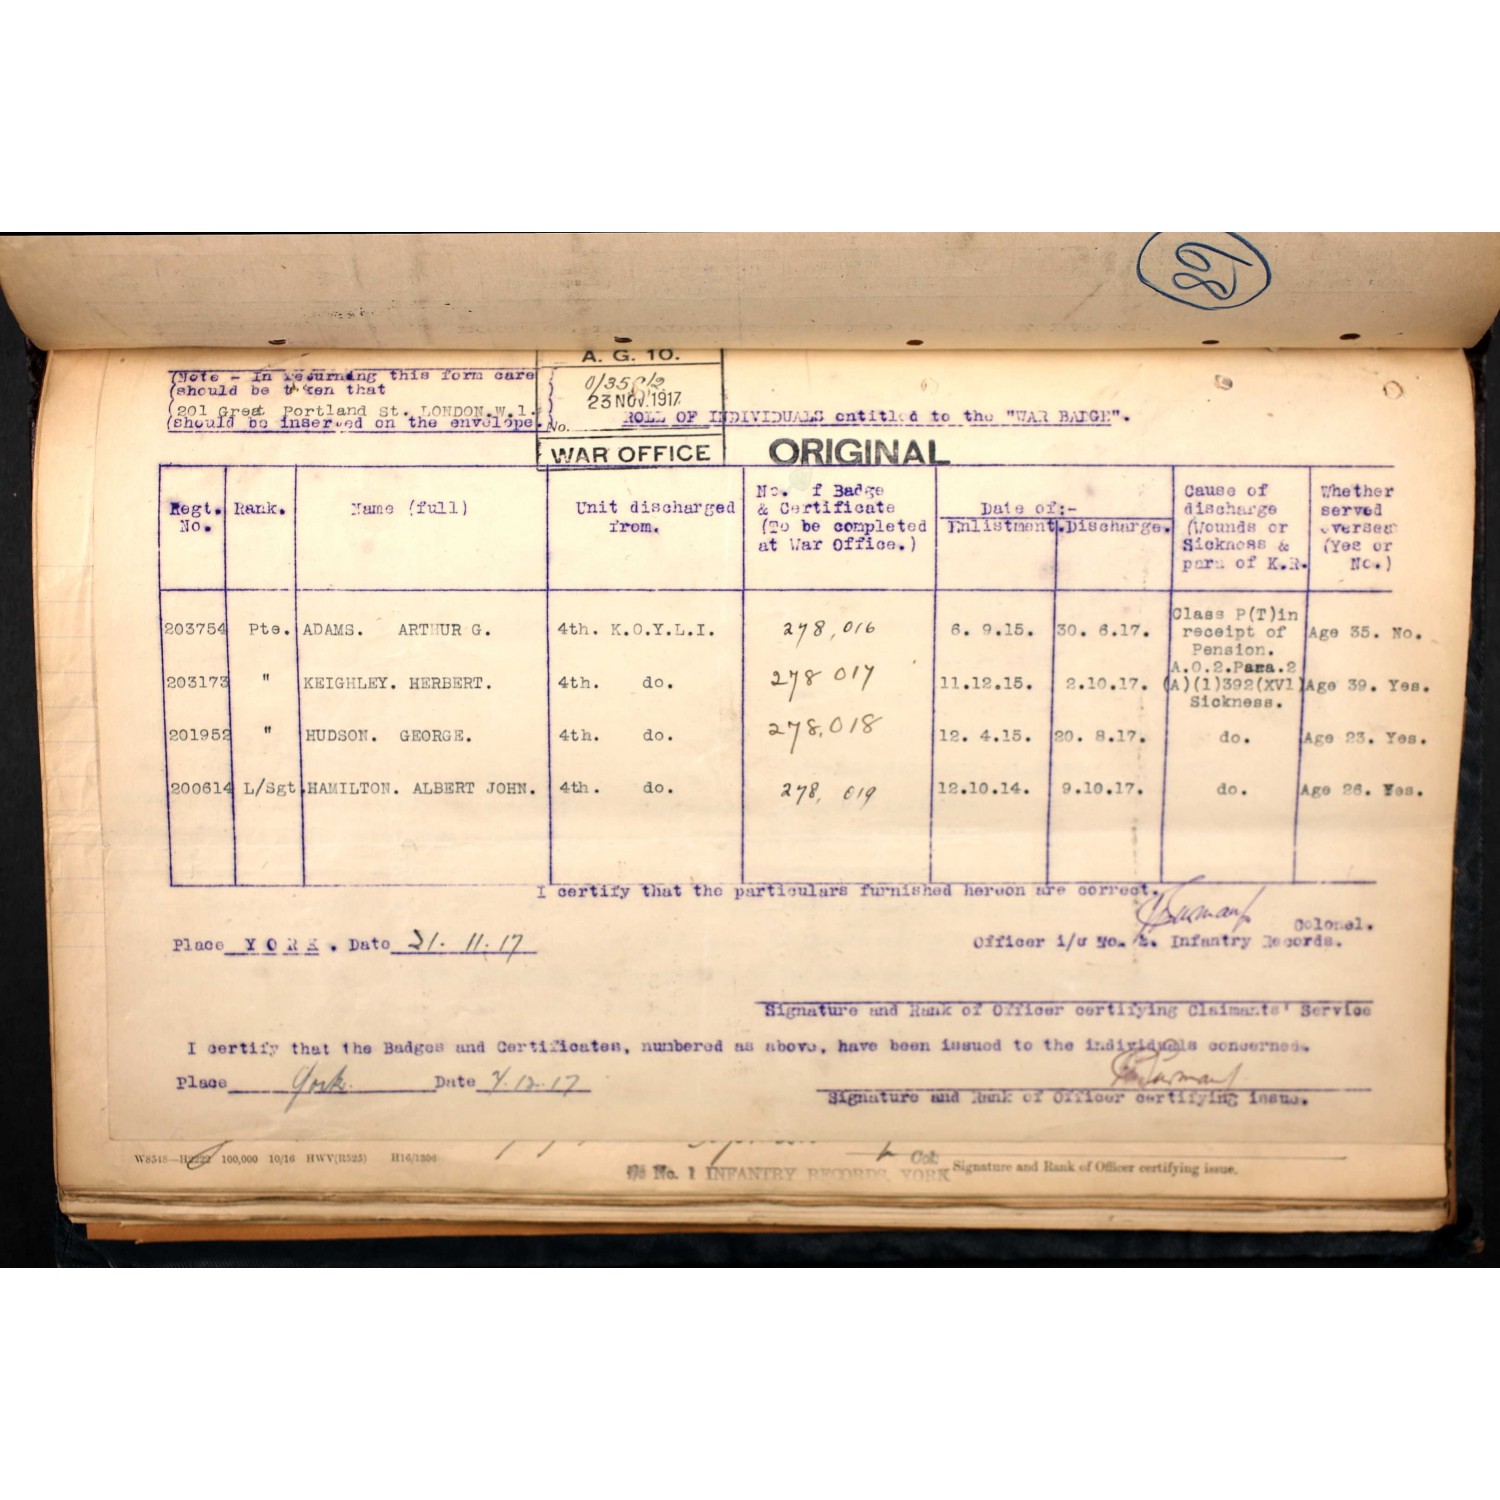 68
A. G. 10.
(Note - In returning this form care
(should be taken that
(201 Great Portland St. LONDON.W.1.
(should be inserted on the envelope.
23 NOV.1917
No.
WAR OFFICE
ROLL OF INDIVIDUALS entitled to the "WAR BADGE".
ORIGINAL
Regt. No. Rank. Name (full) Unit discharged from. No. of Badge & Certificate (To be completed at War Office.) Date of:- Enlistment. Discharge. Cause of discharge (Wounds or Sickness & para of K.R. Whether served overseas (Yes or No.)
203754 Pte. ADAMS. ARTHUR G. 4th. K.O.Y.L.I. 278,016 6. 9.15. 30. 6.17. Class P(T)in receipt of Pension. Age 35. No.
203173 " KEIGHLEY. HERBERT. 4th. do. 278 017 11.12.15. 2.10.17. A.O.2.Para.2 (A)(1)392(XVI) Sickness. Age 39. Yes.
201952 " HUDSON. GEORGE. 4th. do. 278,018 12. 4.15. 20. 8.17. do. Age 23. Yes.
200614 L/Sgt. HAMILTON. ALBERT JOHN. 4th. do. 278, 019 12.10.14. 9.10.17. do. Age 26. Yes.
I certify that the particulars furnished hereon are correct.
Colonel.
Place YORK. Date 21. 11. 17
Officer i/c No. Infantry Records.
Signature and Rank of Officer certifying Claimants' Service
I certify that the Badges and Certificates, numbered as above, have been issued to the individuals concerned.
Place York. Date 4.12.17
Signature and Rank of Officer certifying issue.
W8548—H2222 100,000 10/16 HWV(R525) H16/1306
Col.
No. 1 INFANTRY RECORDS, YORK
Signature and Rank of Officer certifying issue.